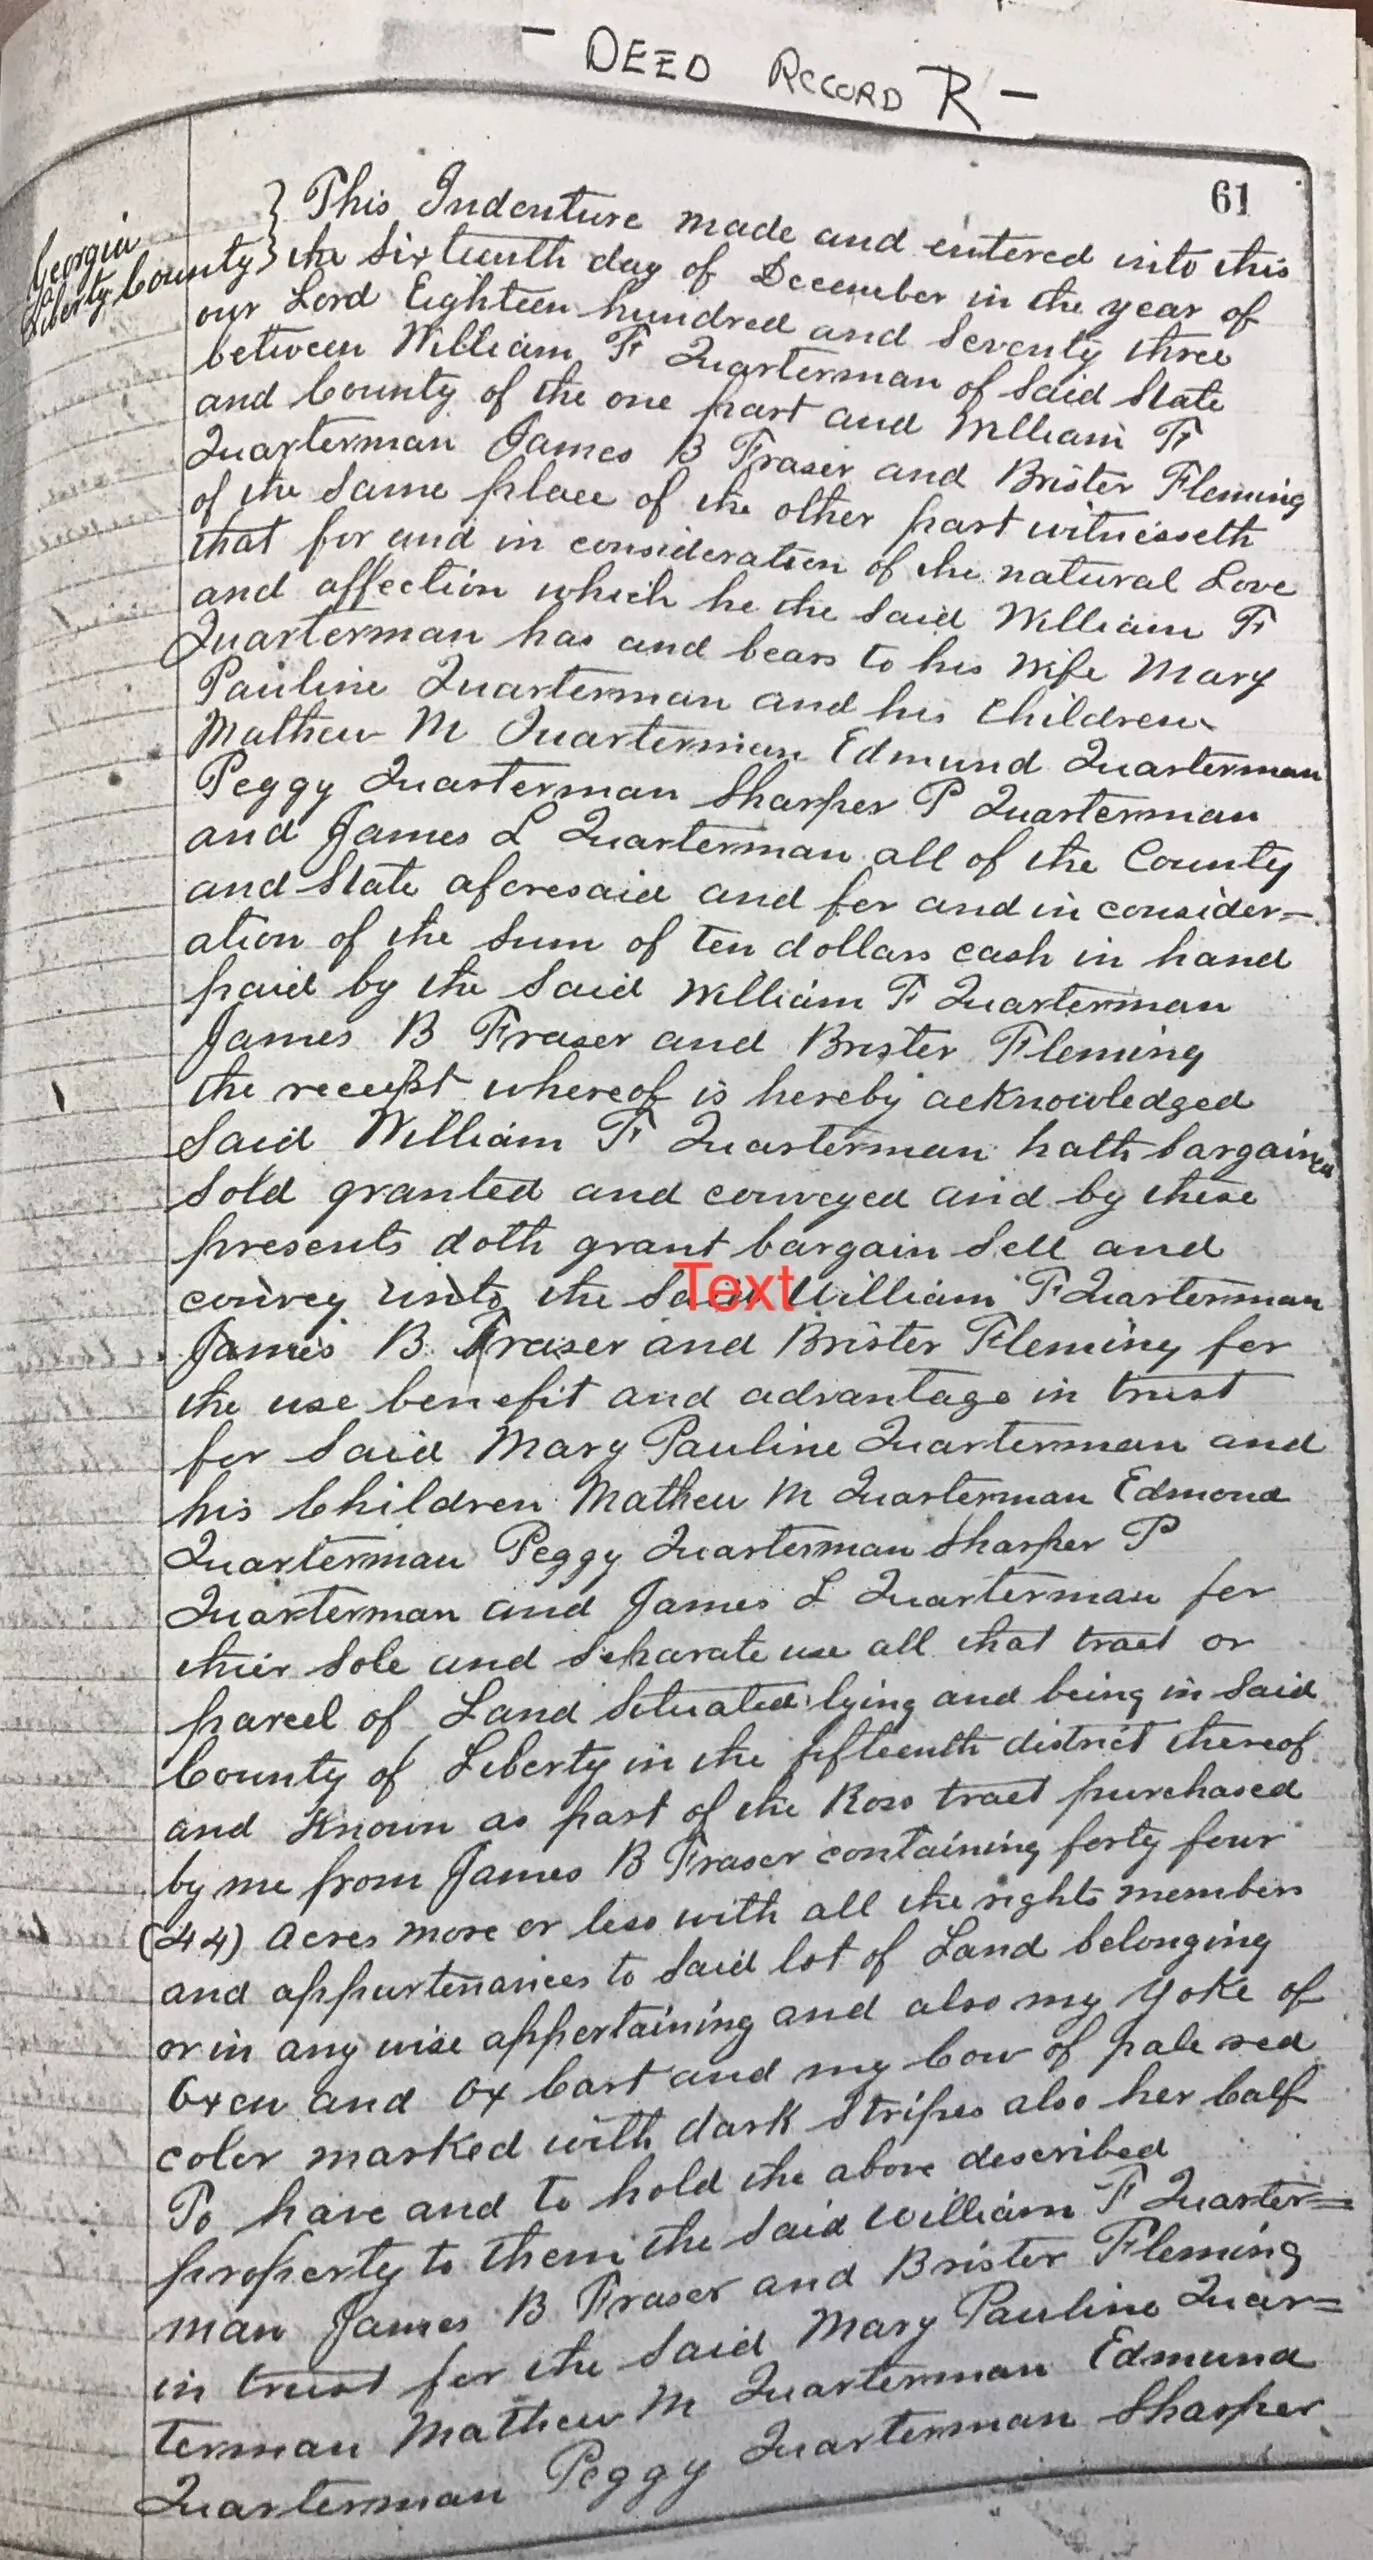 - DEED RECORD R -
61
Georgia
Liberty County } This Indenture made and entered into this
the sixteenth day of December in the year of
our Lord Eighteen hundred and Seventy three
between William F Quarterman of Said State
and County of the one part and William F
Quarterman James B Fraser and Brister Fleming
of the Same place of the other part witnesseth
that for and in consideration of the natural Love
and affection which he the Said William F
Quarterman has and bears to his Wife Mary
Pauline Quarterman and his Children
Mathew M Quarterman Edmund Quarterman
Peggy Quarterman Sharper P Quarterman
and James L Quarterman all of the County
and State aforesaid and for and in consider=
ation of the Sum of ten dollars cash in hand
paid by the Said William F Quarterman
James B Fraser and Brister Fleming
the receipt whereof is hereby acknowledged
Said William F Quarterman hath bargained
Sold granted and conveyed and by these
presents doth grant bargain Sell and
convey unto the Said William F Quarterman
Text
James B Fraser and Brister Fleming for
the use benefit and advantage in trust
for Said Mary Pauline Quarterman and
his Children Mathew M Quarterman Edmond
Quarterman Peggy Quarterman Sharper P
Quarterman and James L Quarterman for
their Sole and Separate use all that tract or
parcel of Land Situated lying and being in Said
County of Liberty in the fifteenth district thereof
and Known as part of the Ross tract purchased
by me from James B Fraser containing forty four
(44) Acres more or less with all the rights members
and appurtenances to Said lot of Land belonging
or in any wise appertaining and also my Yoke of
Oxen and Ox Cart and my Cow of pale red
color marked with dark Stripes also her Calf
To have and to hold the above described
property to them the Said William F Quarter=
man James B Fraser and Brister Fleming
in trust for the Said Mary Pauline Quar=
terman Mathew M Quarterman Edmund
Quarterman Peggy Quarterman Sharper